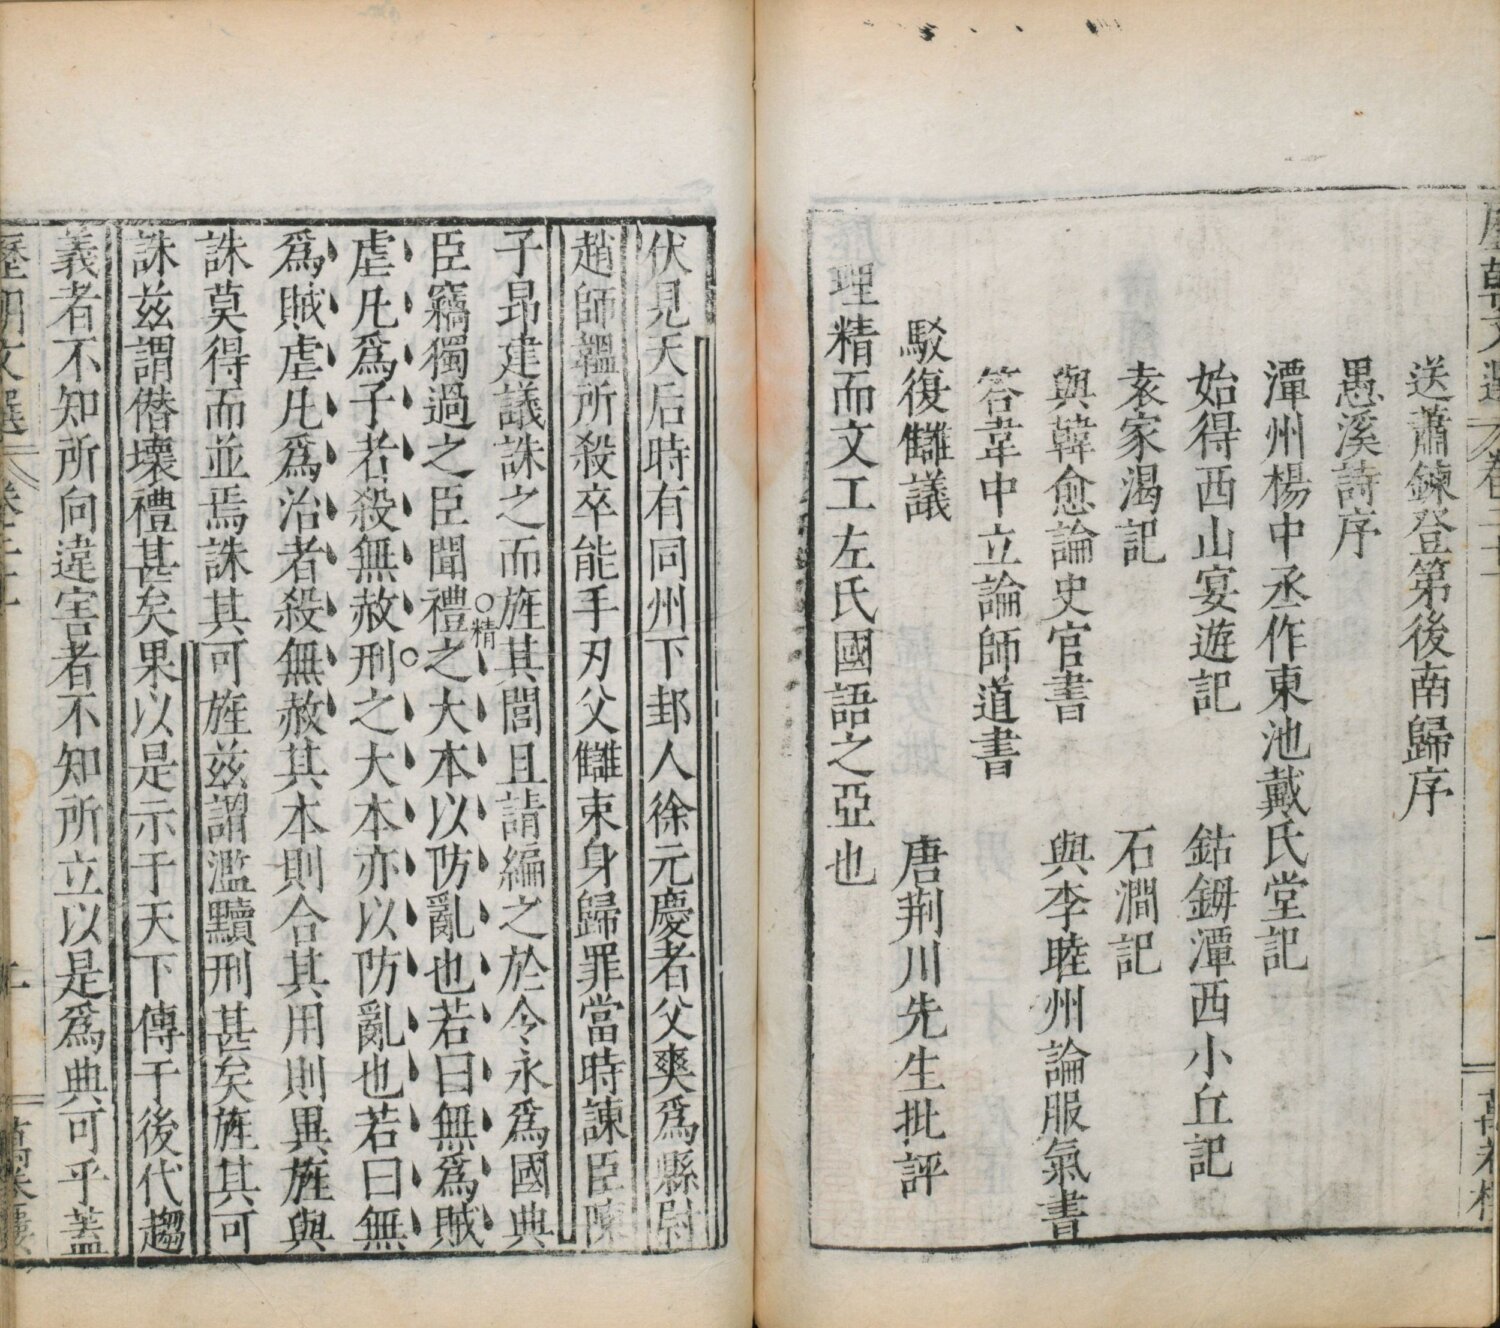 送蕭鍊登第後南歸序
愚溪詩序
潭州楊中丞作東池戴氏堂記
始得西山宴遊記　鈷鉧潭西小丘記
袁家渴記　石澗記
與韓愈論史官書　與李睦州論服氣書
答韋中立論師道書
駁復讎議　唐荆川先生批評
理精而文工左氏國語之亞也
伏見天后時有同州下邽人徐元慶者父爽爲縣尉
趙師韞所殺卒能手刃父讎束身歸罪當時諫臣陳
子昂建議誅之而旌其閭且請編之於令永爲國典
臣竊獨過之臣聞禮之大本以防亂也若曰無爲賊
精
虐凡爲子者殺無赦刑之大本亦以防亂也若曰無
爲賊虐凡爲治者殺無赦其本則合其用則異旌與
誅莫得而並焉誅其可旌兹謂濫黷刑甚矣旌其可
誅兹謂僭壞禮甚矣果以是示于天下傳于後代趨
義者不知所向違害者不知所立以是爲典可乎蓋
歷朝文選